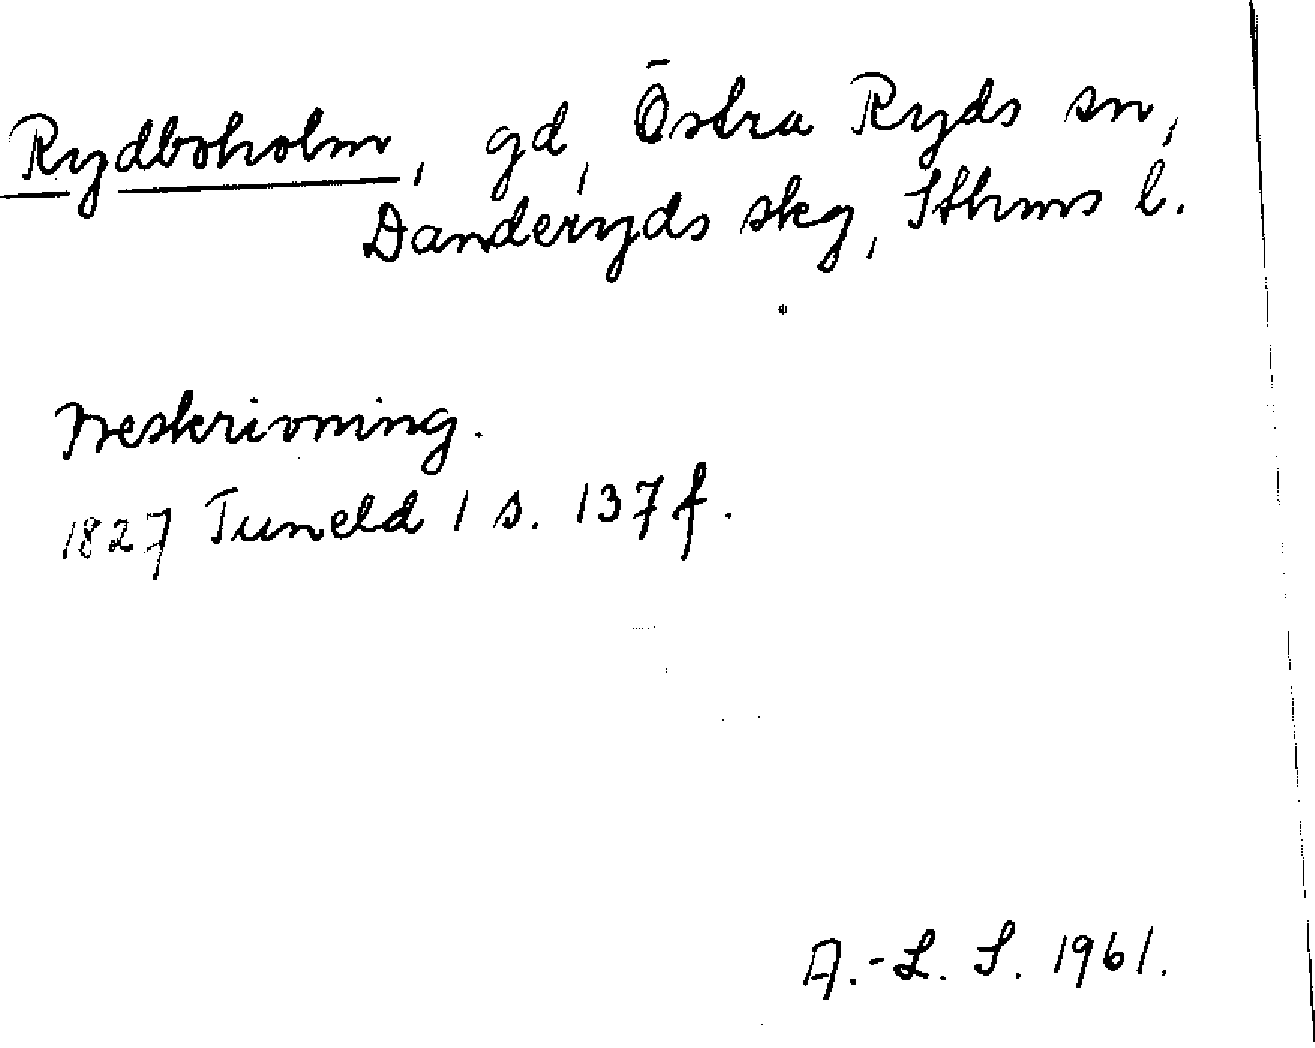 Rydboholm, gd, Östra Ryds sn,
Danderyds skg, Sthms l.
Beskrivning.
1827 Tuneld 1 s. 137 f.
A.-L. S. 1961.